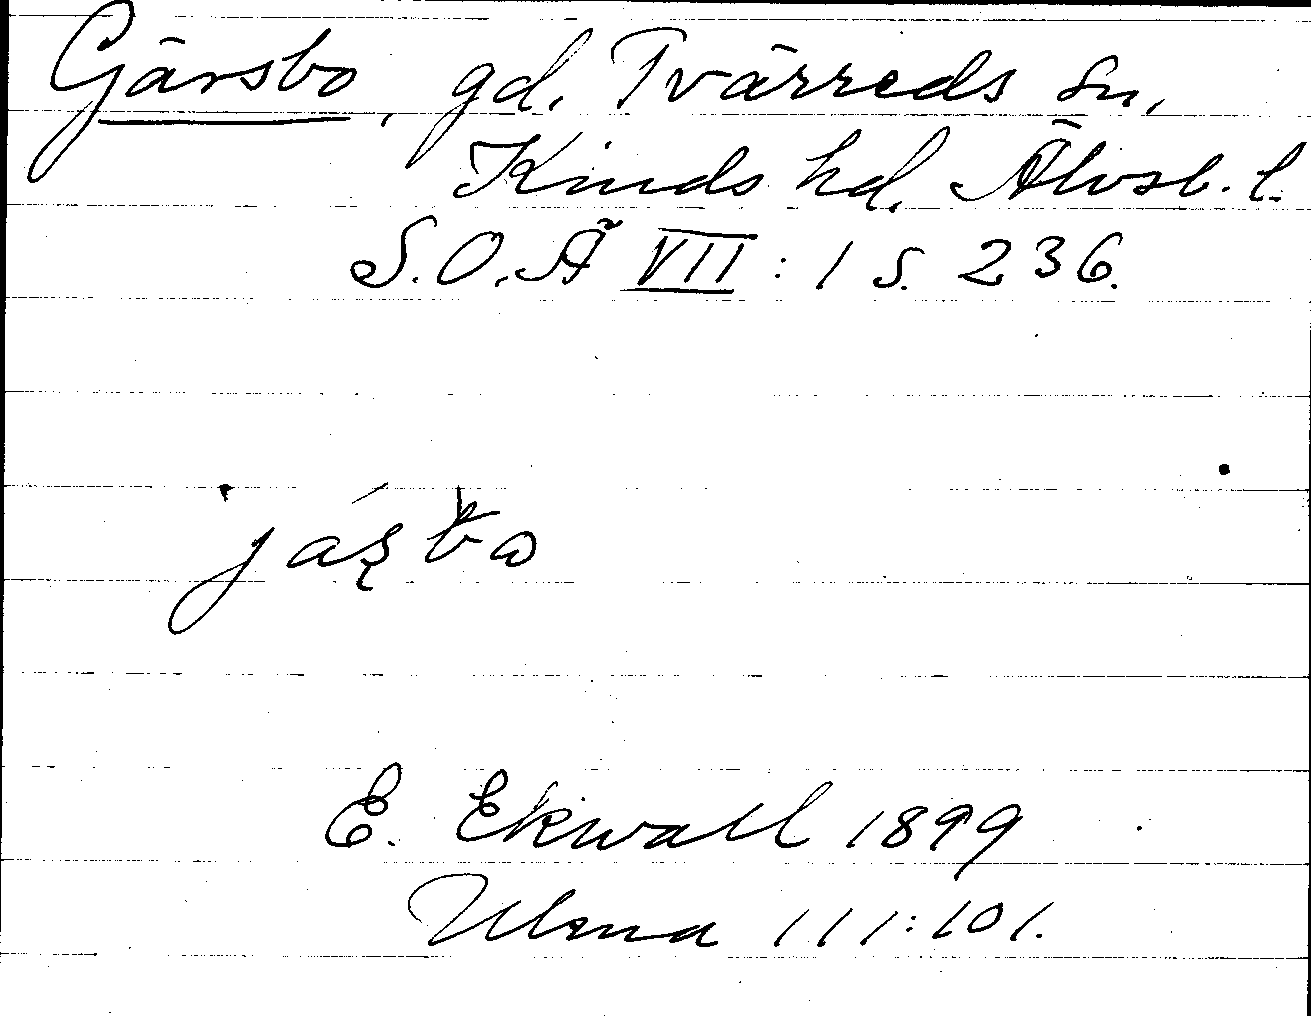 Gärsbo, gd. Tvärreds sn,
Kinds hd. Älvsb. l.
S.O.Ä VII : 1 s. 236.
E. Ekwall 1899
Ulma 111:101.